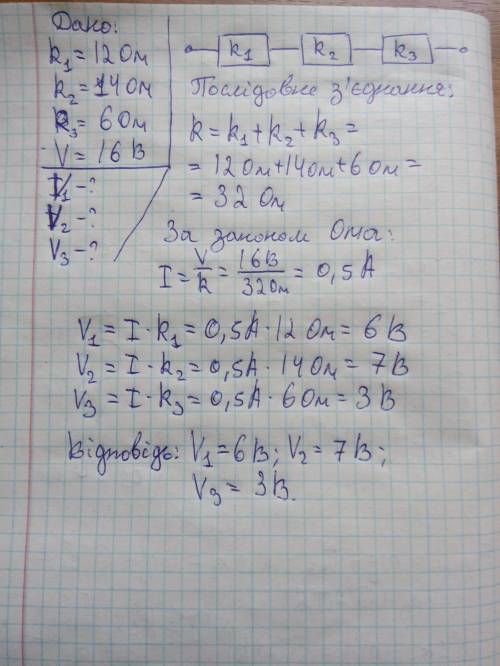 Дано:
R₁ = 12 Ом
R₂ = 14 Ом
R₃ = 6 Ом
V = 16 В
V₁ - ?
V₂ - ?
V₃ - ?
R₁ R₂ R₃
Послідовне з'єднання:
R = R₁ + R₂ + R₃ =
= 12 Ом + 14 Ом + 6 Ом =
= 32 Ом
За законом Ома:
I = V/R = 16В/32Ом = 0,5 А
V₁ = I · R₁ = 0,5А · 12 Ом = 6 В
V₂ = I · R₂ = 0,5А · 14 Ом = 7 В
V₃ = I · R₃ = 0,5А · 6 Ом = 3 В
Відповідь: V₁ = 6 В; V₂ = 7 В;
V₃ = 3 В.